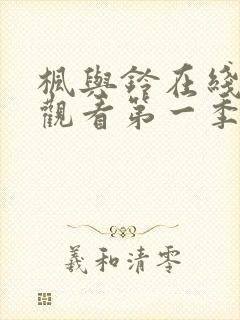 楓與鈴在綫
觀看第一季
羲和清零